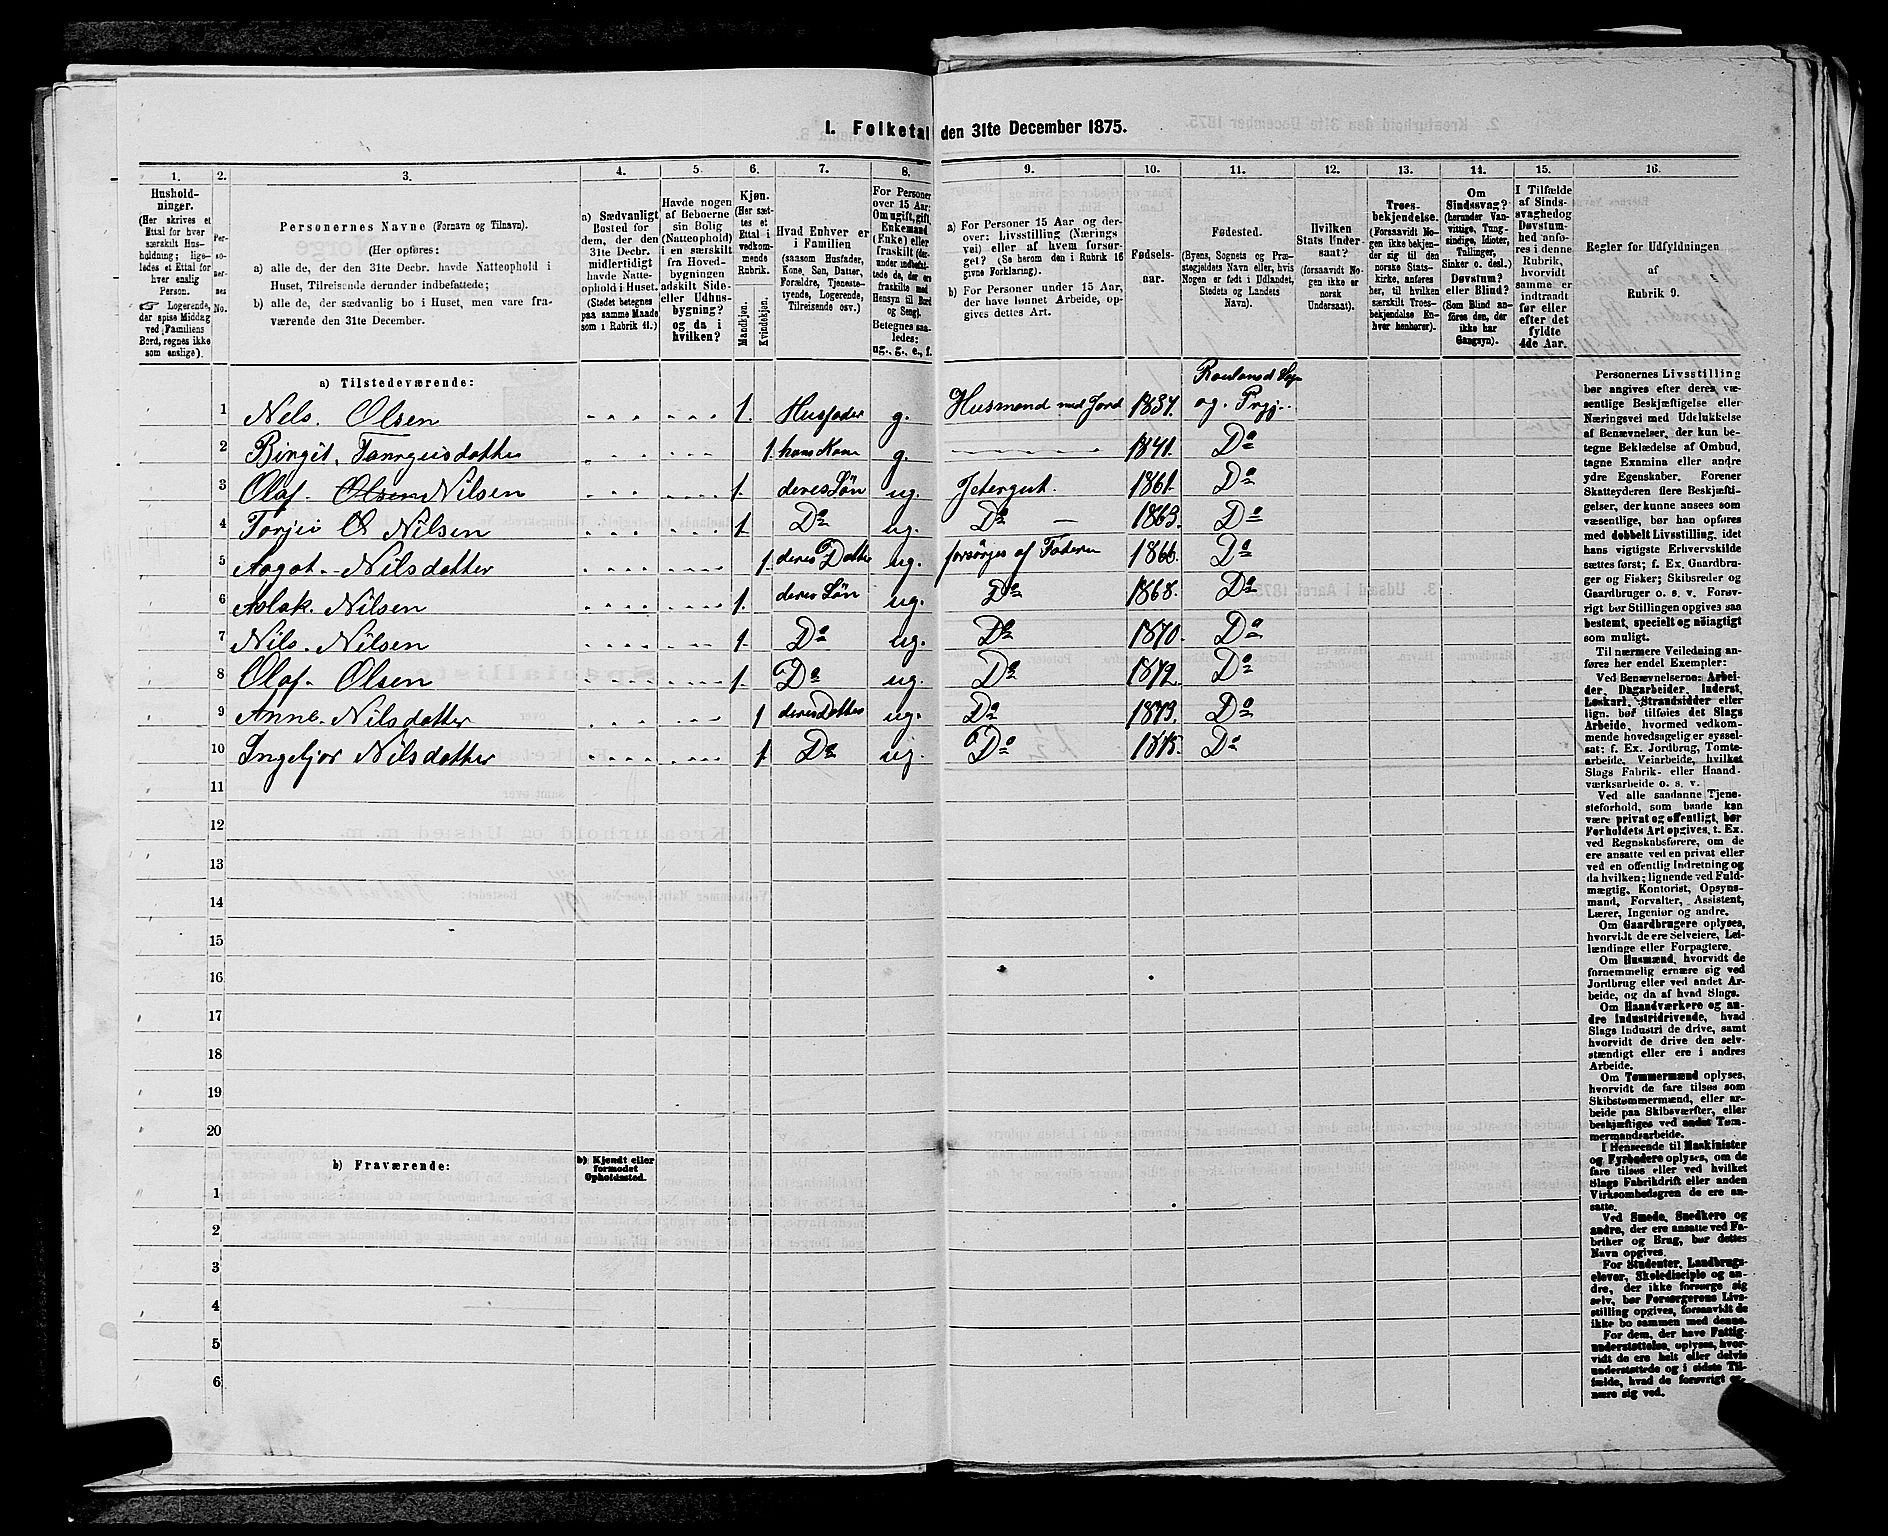 I. Folketal den 31te December 1875.
1. 2. 3. 4. 5. 6. 7. 8. 9. 10. 11. 12. 13. 14. 15. 16.
Hushold-
ninger.
(Her skrives et
Ettal for hver
særskilt Hus-
holdning; lige-
ledes et Ettal for
hver enslig
Person.
☞ Logerende,
der spise Middag
ved Familiens
Bord, regnes ikke
som enslige).
Per-
so-
ner-
nes
No.
Personernes Navne (Fornavn og Tilnavn).
(Her opføres:
a) alle de, der den 31te Decbr. havde Natteophold i
Huset, Tilreisende derunder indbefattede;
b) alle de, der sædvanlig bo i Huset, men vare fra-
værende den 31te December.
a) Sædvanligt
Bosted for
dem, der den
31te Decbr.
midlertidigt
havde Natte-
ophold i Huset.
(Stedet betegnes
paa samme Maade
som i Rubrik 11.)
Havde nogen
af Beboerne
sin Bolig
(Natteophold)
i en særskilt
fra Hoved-
bygningen
adskilt Side-
eller Udhus-
bygning?
og da i
hvilken?
Kjøn.
(Her sæt-
tes et
Ettal i
vedkom-
mende
Rubrik.
Mandkjøn.
Kvindekjøn.
Hvad Enhver er
i Familien
(saasom Husfader,
Kone, Søn, Datter,
Forældre, Tjeneste-
tyende, Logerende,
Tilreisende osv.)
For Personer
over 15 Aar:
Om ugift, gift,
Enkemand
(Enke) eller
fraskilt (der-
under indbefat-
tede de, der ere
fraskilte med
Hensyn til Bord
og Seng).
Betegnes saa-
ledes:
ug., g., e., f.
a) For Personer 15 Aar og der-
over: Livsstilling (Nærings
vei) eller af hvem forsør-
get? (Se herom den i Rubrik 16
givne Forklaring).
b) For Personer under 15 Aar,
der have lønnet Arbeide, op-
gives dettes Art.
Fødsels-
aar.
Fødested.
(Byens, Sognets og Præ-
stegjeldets Navn eller, hvis
Nogen er født i Udlandet,
Stedets og Landets
Navn).
Hvilken
Stats Under-
saat?
(forsaavidt No-
gen ikke er
norsk
Undersaat).
Troes-
bekjendelse.
(Forsaavidt No-
gen ikke bekjen-
der sig til den
norske Stats-
kirke, anføres
her, til hvilken
særskilt Troes-
bekjendelse En-
hver henhører).
Om
Sindssvag?
(herunder Van-
vittige, Tung-
sindige, Idioter,
Tullinger,
Sinker o. desl.)
Døvstum?
eller Blind?
(Som Blind an-
føres den, der
ikke har
Gangsyn).
I Tilfælde
af Sinds-
svaghed og
Døvstum-
hed anfø-
res i denne
Rubrik,
hvorvidt
samme er
indtraadt
før eller
efter det
fyldte
4de Aar.
Regler for Udfyldningen
af
Rubrik 9.
a) Tilstedeværende:
1 Nels. Olsen 1. Husfader g. Husmand med Jord 1837. Rauland Sogn og. Prgj..
2 Birgit, Tarrgeisdatter 1. hans Kone g. 1841. Do
3 Olaf. Olsen Nilsen 1. deres Søn ug. Jetergut. 1861. Do
4 Torjei O Nilsen 1. Do ug. Do 1863. Do
5 Aagot. Nilsdatter 1. deres Datter ug. forsörjes af Faderen 1866. Do
6 Aslak. Nilsen 1. deres Søn ug. Do 1868. Do
7 Nils. Nilsen 1. Do ug. Do 1870. Do
8 Olaf. Olsen 1. Do ug. Do 1872. Do
9 Anne. Nilsdatter 1 deres Datter ug. Do 1873. Do
10 Ingebjor Nilsdatter 1. Do ug. Do 1875. Do
11
12
13
14
15
16
17
18
19
20
b) Fraværende:
b) Kjendt eller
formodet
Opholdssted.
1
2
3
4
5
6
Personernes Livsstilling
bør angives efter deres væ-
sentlige Beskjæftigelse eller
Næringsvei med Udelukkelse
af Benævnelser, der kun be-
tegne Beklædelse af Ombud,
tagne Examina eller andre
ydre Egenskaber. Forener
Skatteyderen flere Beskjæfti-
gelser, der kunne ansees som
væsentlige, bør han opføres
med dobbelt Livsstilling, idet
hans vigtigste Erhvervskilde
sættes først; f. Ex. Gaardbru-
ger og Fisker; Skibsreder og
Gaardbruger o. s. v. Forøv-
rigt bør Stillingen opgives saa
bestemt, specielt og nøiagtigt
som muligt.
Til nærmere Veiledning an-
føres her endel Exempler:
Ved Benævnelserne: Arbei-
der, Dagarbeider, Inderst,
Løskarl, Strandsidder eller
lign. bør tilføies det Slags
Arbeide, hvormed vedkom-
mende hovedsagelig er syssel-
sat; f. Ex. Jordbrug, Tomte-
arbeide, Veiarbeide, hvilket
Slags Fabrik- eller Haand-
værksarbeide o. s. v.
Ved alle saadanne Tjene-
steforhold, som baade kan
være privat og offentligt, bør
Forholdets Art opgives, t. Ex.
ved Regnskabsførere, om de
ere ansatte ved en privat eller
ved en offentlig Indretning og
da hvilken; lignende ved Fuld-
mægtig, Kontorist, Opsyns-
mand, Forvalter, Assistent,
Lærer, Ingeniør og andre.
Om Gaardbrugere oplyses,
hvorvidt de ere Selveiere, Lei-
lændinge eller Forpagtere.
Om Husmænd, hvorvidt de
fornemmelig ernære sig ved
Jordbrug eller ved andet Ar-
beide, og da af hvad Slags.
Om Haandværkere og an-
dre industridrivende, hvad
Slags Industri de drive, samt
hvorvidt de drive den selv-
stændigt eller ere i andres
Arbeide.
Om Tømmermænd oplyses,
hvorvidt de fare tilsøs som
Skibstømmermænd, eller ar-
beide paa Skibsværfter, eller
beskjæftiges ved andet Tøm-
mermandsarbeide.
I Henseende til Maskinister
og Fyrbødere oplyses, om de
fare tilsøs eller ved hvilket
Slags Fabrikdrift eller anden
Virksomhedsgren de ere an-
satte.
Ved Smede, Snedkere og
andre, der ere ansatte ved Fa-
briker og Brug, bør dettes
Navn opgives.
For Studenter, Landbrugs-
elever, Skoledisciple og an-
dre, der ikke forsørge sig
selv, bør Forsørgerens Livs-
stilling opgives, forsaavidt de
ikke bo sammen med denne.
For dem, der have Fattig-
understøttelse, oplyses, hvor-
vidt de ere helt eller delvis
understøttede og i sidste Til-
fælde, hvad de forøvrigt er-
nære sig ved.